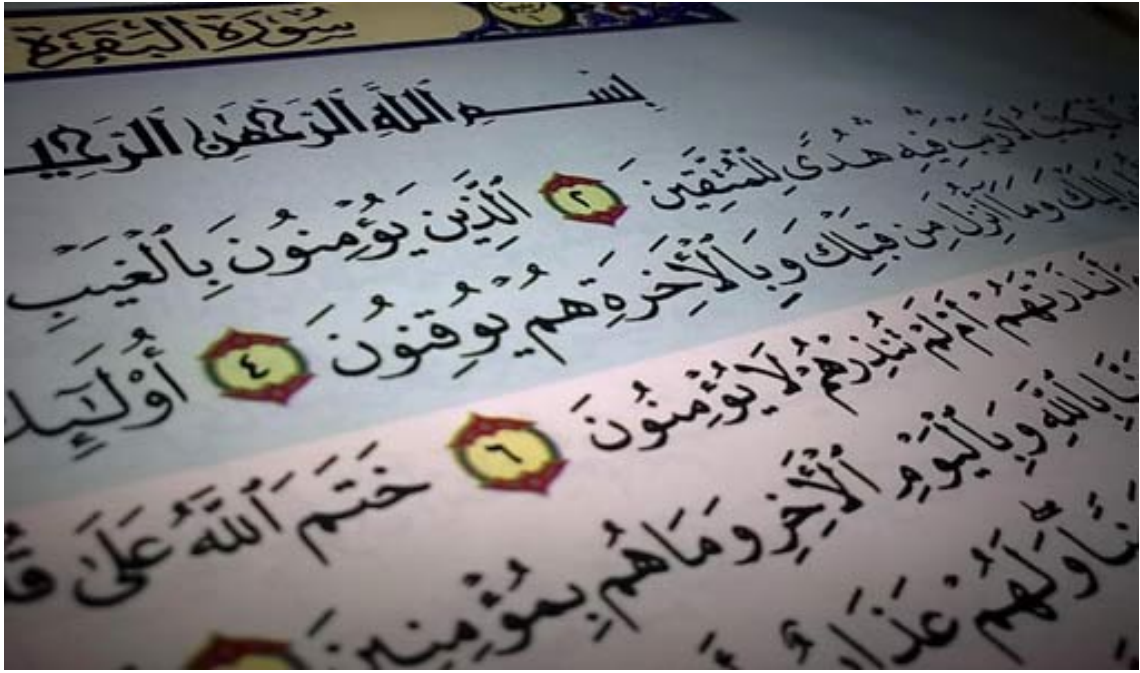 سُورَةُ البَقَرَةِ
بِسْمِ ٱللَّهِ ٱلرَّحْمَٰنِ
ٱلْكِتَٰبُ لَا رَيْبَ فِيهِ هُدًى لِّلْمُتَّقِينَ ٢ ٱلَّذِينَ يُؤْمِنُونَ بِٱلْغَيْبِ
إِلَيْكَ وَمَآ أُنزِلَ مِن قَبْلِكَ وَبِٱلْأَخِرَةِ هُمْ يُوقِنُونَ ٤
ءَأَنذَرْتَهُمْ أَمْ لَمْ تُنذِرْهُمْ لَا يُؤْمِنُونَ ٦ خَتَمَ ٱللَّهُ عَلَىٰ
بِٱللَّهِ وَبِٱلْيَوْمِ ٱلْأَخِرِ وَمَا هُم بِمُؤْمِنِينَ
وَلَهُمْ